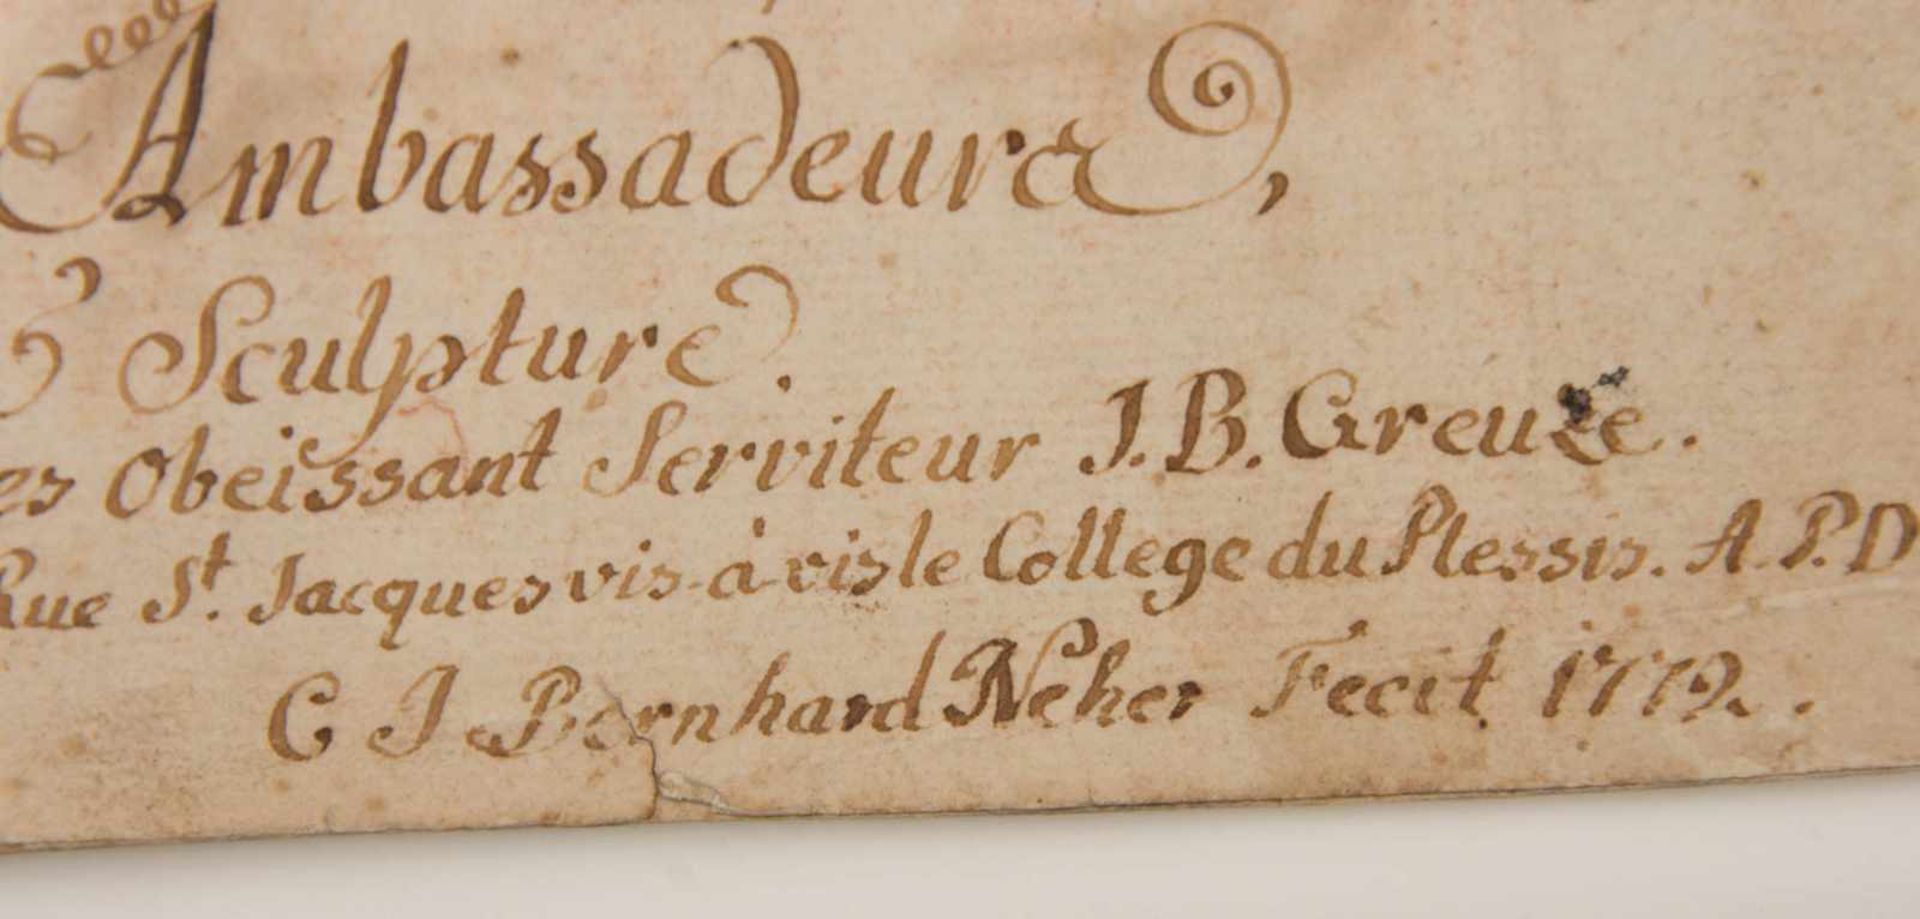 Ambassadeurs,
Sculpture.
es Obeissant Serviteur J. B. Greuze.
Rue St. Jacques vis-à-vis le College du Plessis. A. P. D
C J Bernhard Neher Fecit 1772.